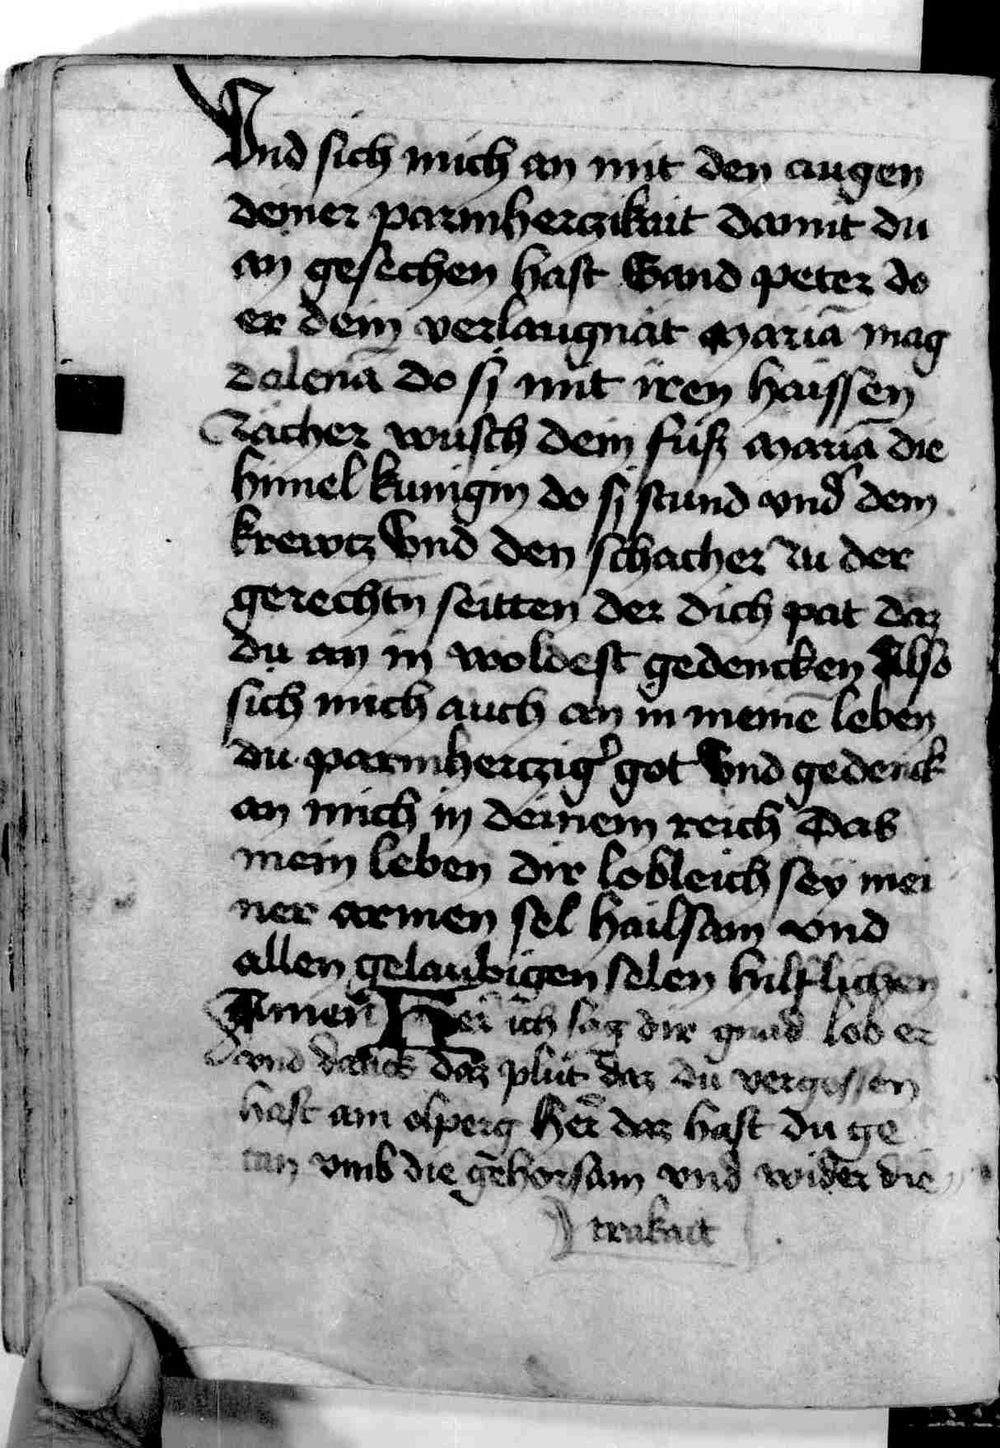 Vnd sich mich an mit den augen
deiner parmherczikait damit du
an gesechen hast Sand peter do
er dein verlaugnat Mariā mag
dalenā do si mit iren haissen
Zächer wusch dein füsz Mariā die
himel kunigin do si stund vnd̛ dem
krewtz Vnd den schacher zu der
gerechtn̄ seitten der dich pat daz
du an in woldest gedencken Also
sich mich auch an in meinē leben
du parmhertzig̛ got Vnd gedenck
an mich in deinem reich Das
mein leben dir lobleich sey mei
ner armen sel hailsam vnd
allen gelaubigen selen hilflichen
Amen Her ich sag dir gnad lob er
vnd danck daz plut daz du vergossen
hast am olperg Her daz hast du ge
tan vmb die gehorsam vnd wider die
trakait